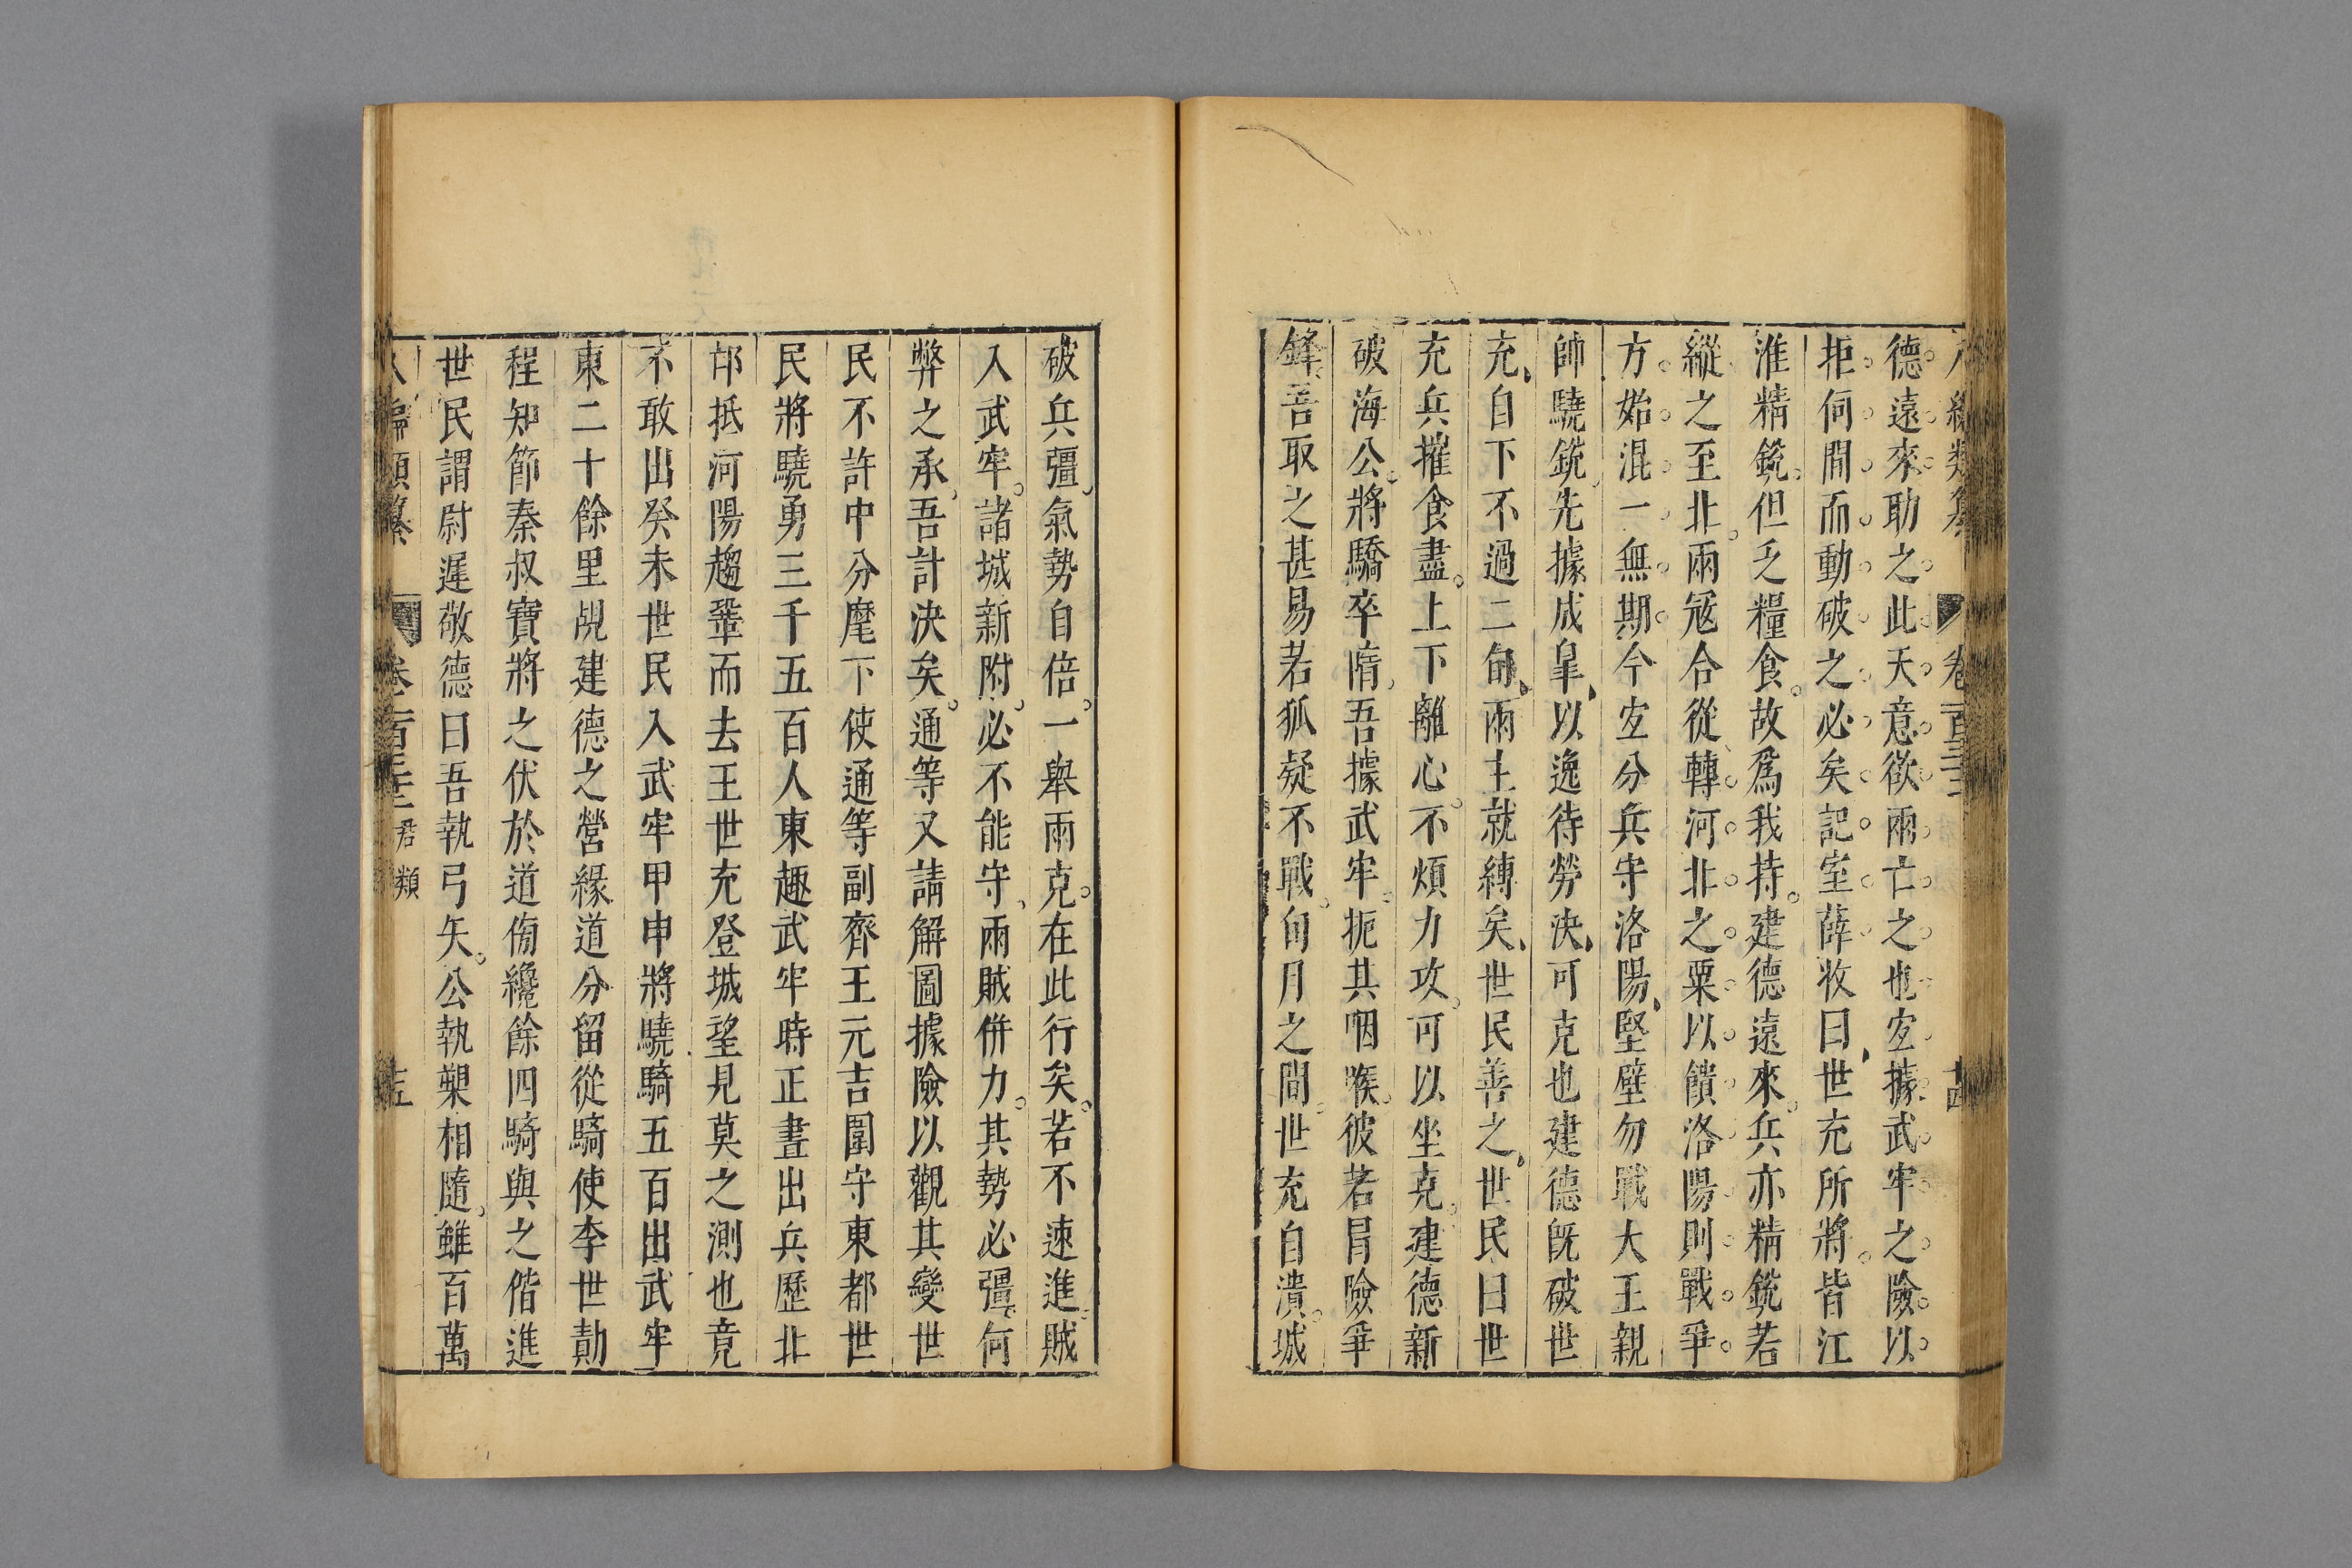 德遠來助之此天意欲兩亡之也宐據武牢之險以
拒伺間而動破之必矣記室薛收曰世充所將皆江
淮精銳但乏糧食故爲我持建德遠來兵亦精銳若
縱之至北兩冦合從轉河北之粟以饋洛陽則戰爭
方始混一無期今宐分兵守洛陽堅壁勿戰大王親
帥驍銳先據成臯以逸待勞決可克也建德旣破世
充自下不過二旬兩主就縛矣世民善之世民曰世
充兵摧食盡上下離心不煩力攻可以坐克建德新
破海公將驕卒惰吾據武牢扼其咽喉彼若冐險爭
鋒吾取之甚易若狐疑不戰旬月之間世充自潰城
破兵彊氣勢自倍一舉兩克在此行矣若不速進賊
入武牢諸城新附必不能守兩賊併力其勢必彊何
弊之承吾計決矣通等又請解圖據險以觀其變世
民不許中分麾下使通等副齊王元吉圍守東都世
民將驍勇三千五百人東趣武牢時正晝出兵歷北
邙抵河陽趨鞏而去王世充登城望見莫之測也竟
不敢出癸未世民入武牢甲申將驍騎五百出武牢
東二十餘里覘建德之營緣道分留從騎使李世勣
程知節秦叔寶將之伏於道傍纔餘四騎與之偕進
世民謂尉遲敬德曰吾執弓矢公執槊相隨雖百萬
八編類纂 卷一百三十三 君類 十五